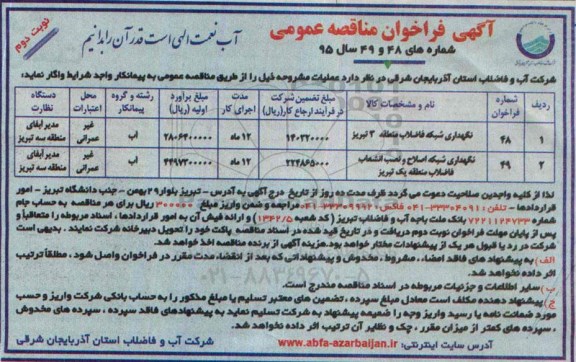 نوبت دوم
آگهی فراخوان مناقصه عمومی
شماره های ۴۸ و ۴۹ سال ۹۵
آب نعمت الهی است قدر آن را بدانیم
شرکت آب و فاضلاب استان آذربایجان شرقی در نظر دارد عملیات مشروحه ذیل را از طریق مناقصه عمومی به پیمانکار واجد شرایط واگذار نماید:
ردیف شماره فراخوان نام و مشخصات کالا مبلغ تضمین شرکت در فرآیند ارجاع کار(ریال) مدت اجرای کار مبلغ برآورد اولیه (ریال) رشته و گروه پیمانکار محل اعتبارات دستگاه نظارت
۱ ۴۸ نگهداری شبکه فاضلاب منطقه ۳ تبریز ۱۴۰۳۲۰۰۰۰ ۱۲ ماه ۲۸۰۶۴۰۰۰۰۰ آب غیر عمرانی مدیر آبفای منطقه سه تبریز
۲ ۴۹ نگهداری شبکه اصلاح و نصب انشعاب فاضلاب منطقه یک تبریز ۲۲۴۸۶۵۰۰۰ ۱۲ ماه ۴۴۹۷۳۰۰۰۰۰ آب غیر عمرانی مدیر آبفای منطقه سه تبریز
لذا از کلیه واجدین صلاحیت دعوت می گردد ظرف مدت ده روز از تاریخ درج آگهی به آدرس - تبریز بلوار ۲۹ بهمن - جنب دانشگاه تبریز - امور
قراردادها - تلفن: ۳۳۳۰۴۰۹۱-۰۴۱ فاکس: ۳۳۳۰۹۹۹۲-۰۴۱ مراجعه و ضمن واریز مبلغ ۳۰۰۰۰۰ ریال برای هر مناقصه به حساب جام
شماره ۷۲۲۱۱۲۴۷۳۳ بانک ملت باجه آب و فاضلاب تبریز (کد شعبه ۱۳۴۲/۵) و ارائه فیش آن به امور قراردادها، اسناد مربوطه را متعاقباً و
پس از پایان مهلت فراخوان نوبت دوم دریافت و در تاریخ قید شده در اسناد مناقصه پاکت خود را تحویل دبیرخانه شرکت نمایند. بدیهی است
شرکت در رد یا قبول هر یک از پیشنهادات مختار خواهد بود. هزینه آگهی از برنده مناقصه اخذ خواهد شد.
الف) به پیشنهاد های فاقد امضاء، مشروط، مخدوش و پیشنهاداتی که بعد از انقضاء مدت مقرر در فراخوان واصل شود، مطلقاً ترتیب
اثر داده نخواهد شد.
ب) سایر اطلاعات و جزئیات مربوطه در اسناد مناقصه مندرج است.
ج) پیشنهاد دهنده مکلف است معادل مبلغ سپرده، تضمین های معتبر تسلیم یا مبلغ مذکور را به حساب بانکی شرکت واریز و حسب
مورد ضمانت نامه یا رسید واریز وجه را ضمیمه پیشنهاد به شرکت تسلیم نماید به پیشنهادهای فاقد سپرده، سپرده های مخدوش
، سپرده های کمتر از میزان مقرر، چک و نظایر آن ترتیب اثر داده نخواهد شد.
آدرس سایت اینترنتی: www.abfa-azarbaijan.ir
شرکت آب و فاضلاب استان آذربایجان شرقی
۰۲۱-۸۸۳۴۹۶۷۰-۵